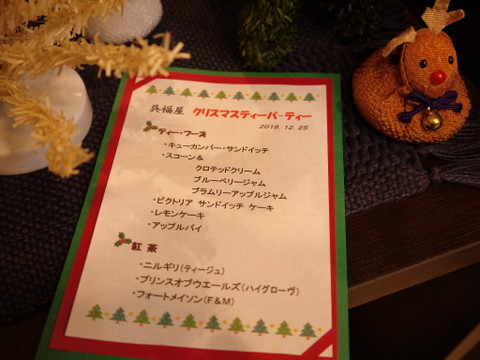 呉福屋 クリスマスティーパーティー
2016.12.25
ティー・フーズ
・キューカンバー・サンドイッチ
・スコーン＆
クロテッドクリーム
ブルーベリージャム
ブラムリーアップルジャム
・ビクトリア サンドイッチ ケーキ
・レモンケーキ
・アップルパイ
紅茶
・ニルギリ(ティージュ)
・プリンスオブウエールズ(ハイグローヴ)
・フォートメイソン(F＆M)